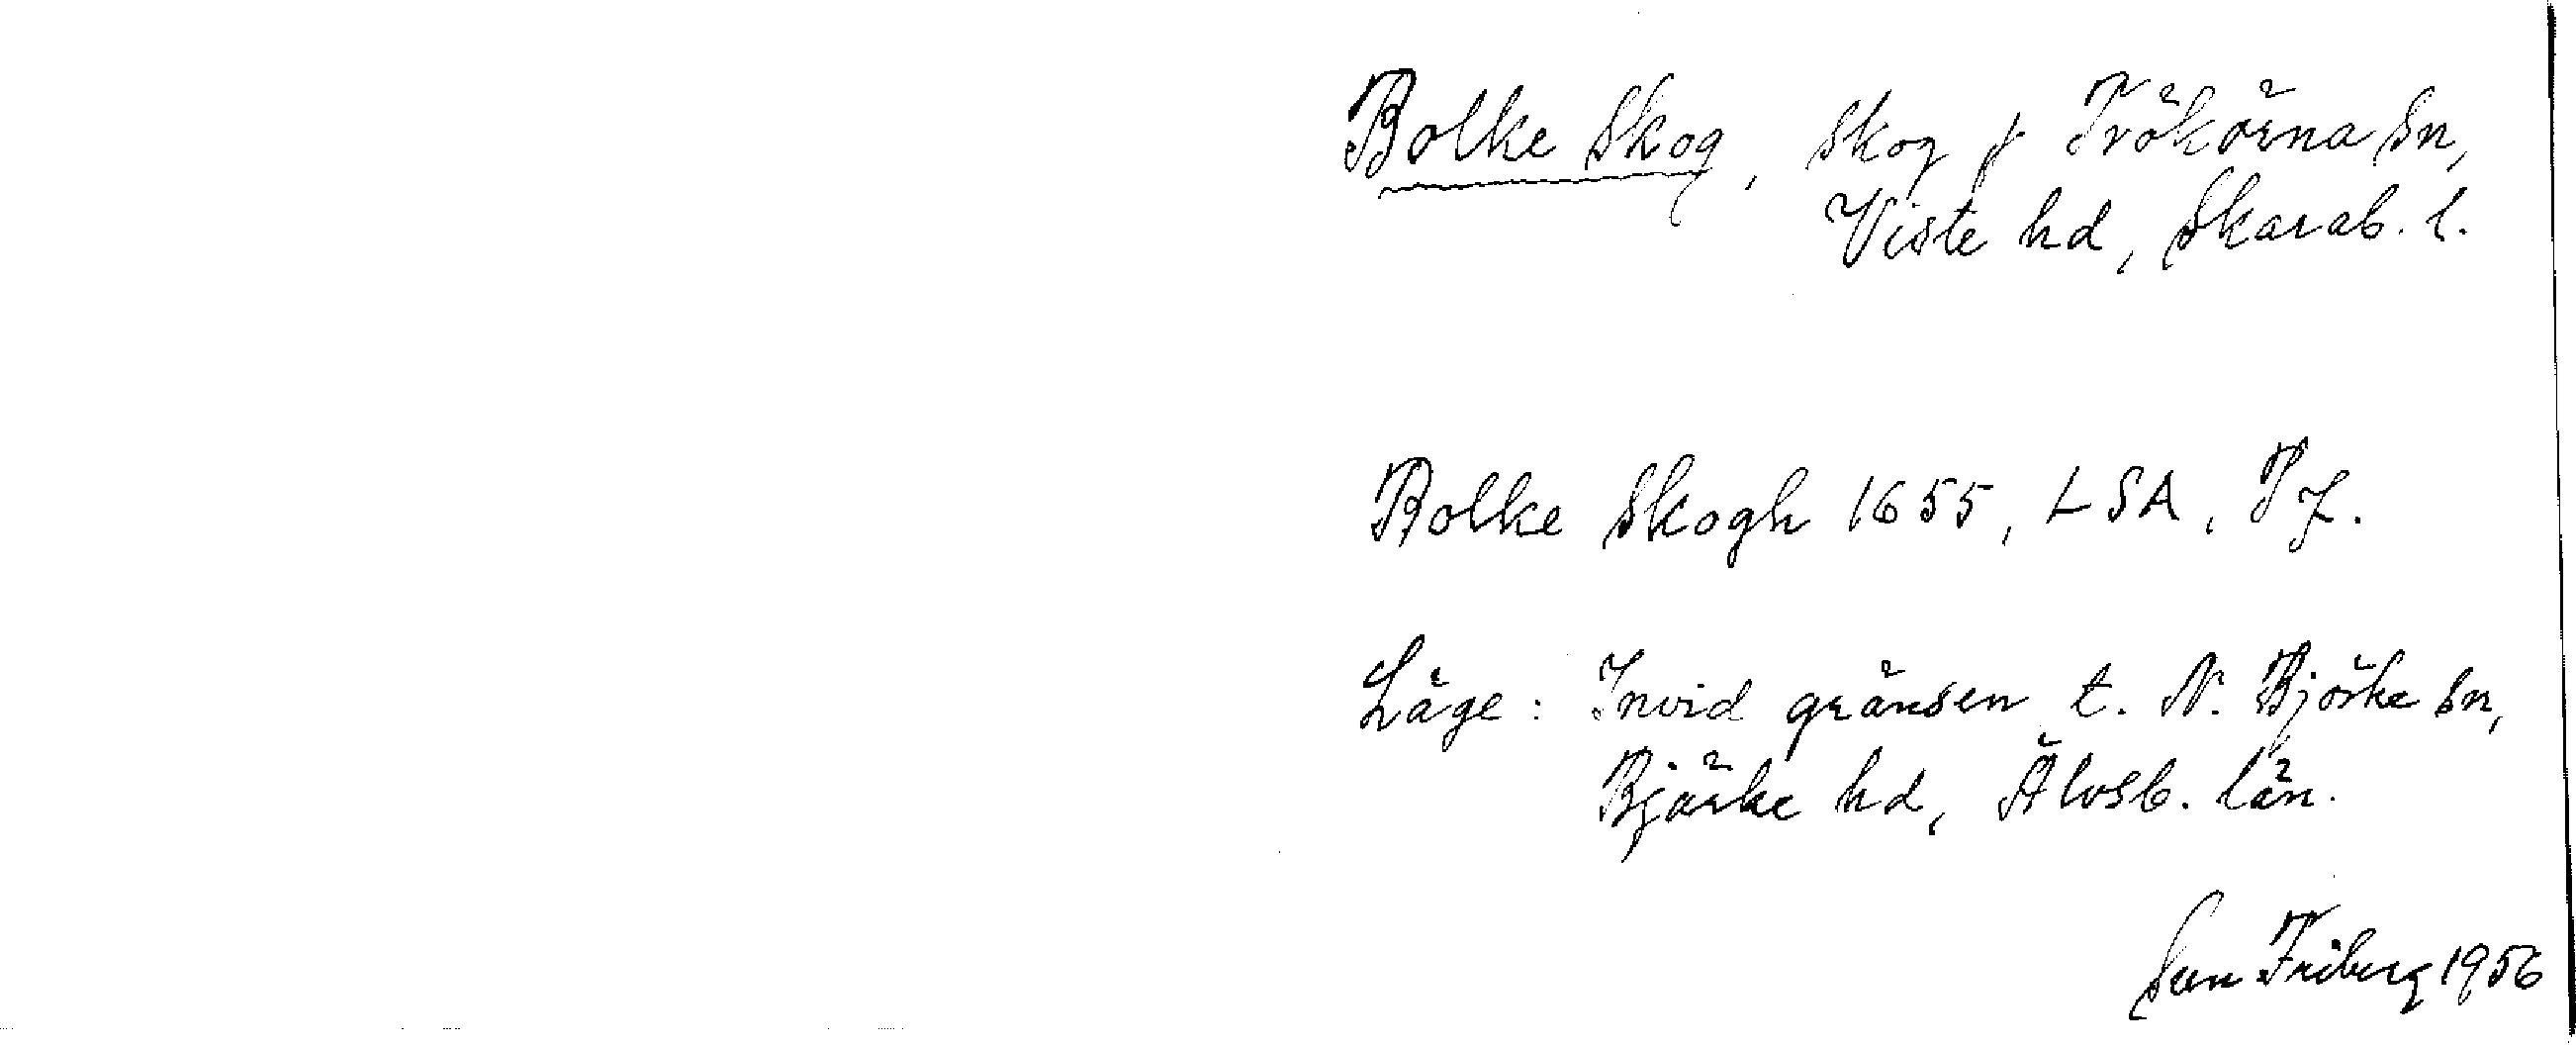 Bolke Skog, skog i Tråkörna sn,
Viste hd, Skarab. l.
Bolke Skogh 1655, LSA, P 7.
Läge: Invid gränsen t. N. Björke sn,
Bjärke hd, Älvsb. län.
Sven Friberg 1956